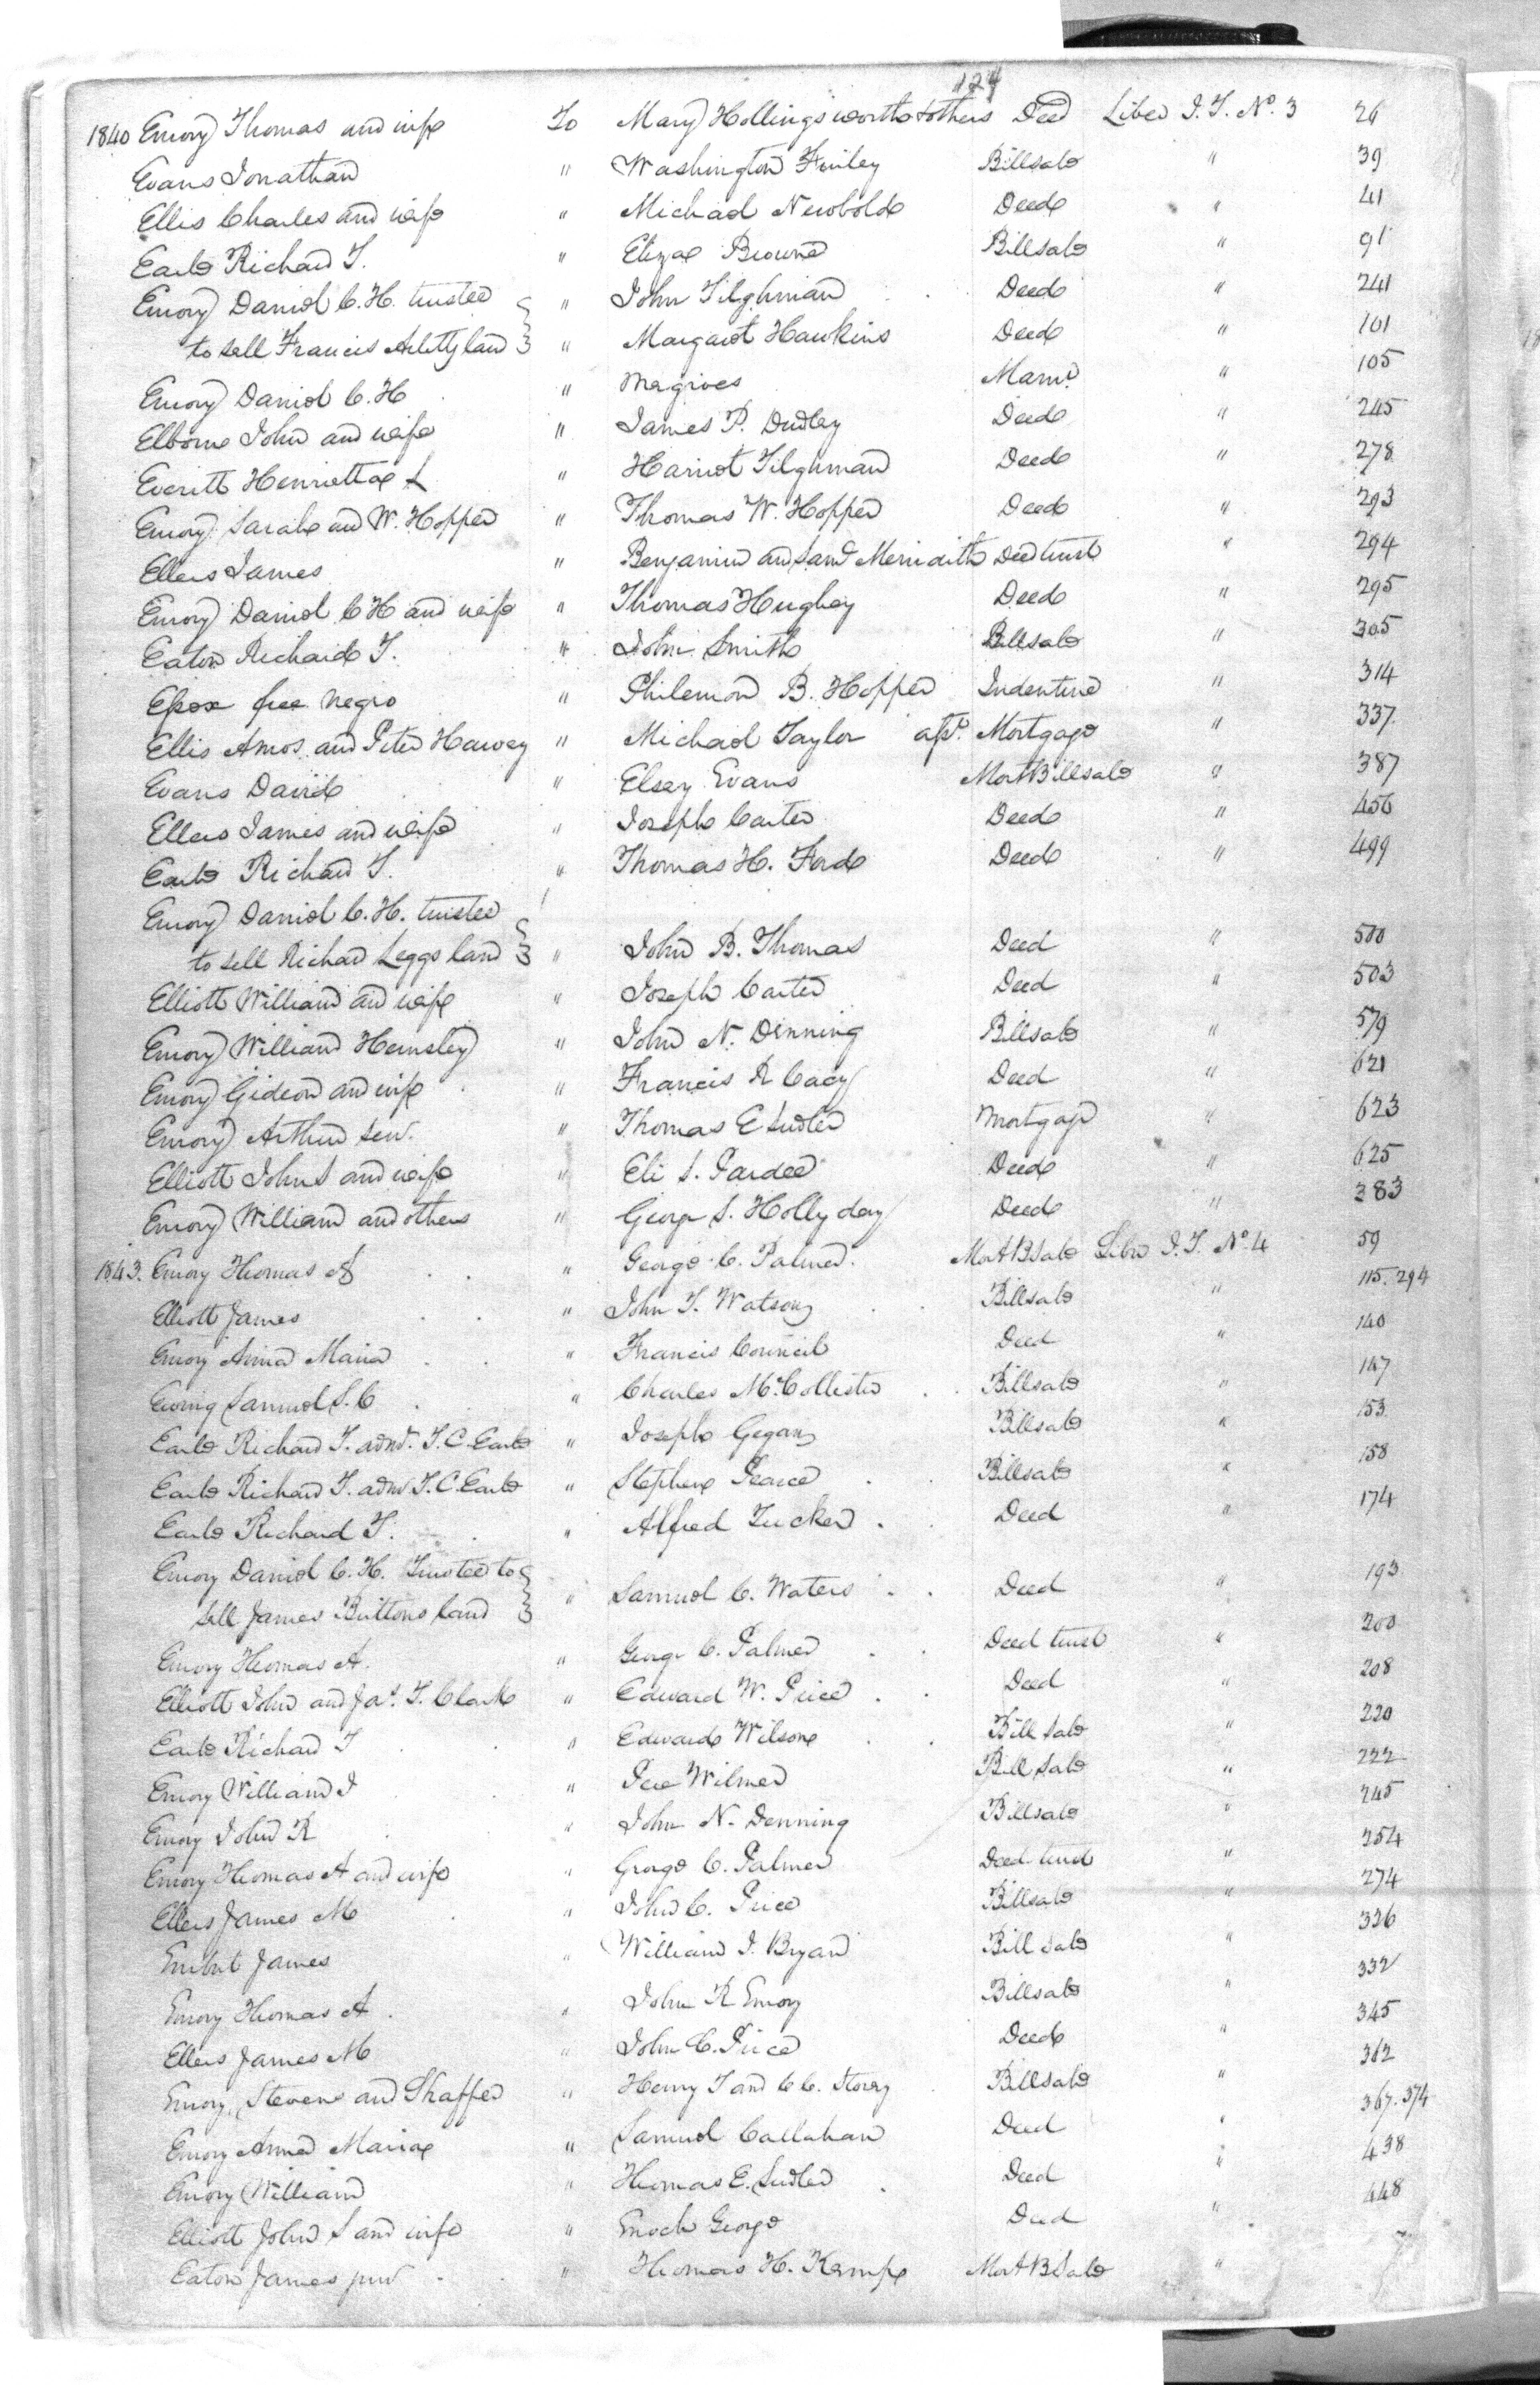 124
1840 Emory Thomas and wife To Mary Hollingsworth & others Deed Liber J.T. No. 3 26
Evans Jonathan " Washington Finley Billsale " 39
Ellis Charles and wife " Michael Newbold Deed " 41
Earle Richard T. " Eliza Browne Billsale " 91
Emory Daniel C. H. trustee " John Tilghman Deed " 241
to sell Francis land " Margaret Hawkins Deed " 101
Emory Daniel C. H " Negroes Manu. " 105
Elborne John and wife " James P. Dudley Deed " 245
Everitt Henrietta L " Harriet Tilghman Deed " 278
Emory Sarah and W. Hopper " Thomas W. Hopper Deed " 293
Ellers James " Benjamin and Saml Meridith Deed trust " 294
Emory Daniel C H and wife " Thomas Hughey Deed " 295
Eaton Richard T. " John Smith Billsale " 305
free negro " Philemon B. Hopper Indenture " 314
Ellis Amos and Peter Harvey " Michael Taylor Mortgage " 337
Evans David " Elsey Evans Mort Billsale " 387
Ellers James and wife " Joseph Carter Deed " 456
Earle Richard T. " Thomas H. Ford Deed " 499
Emory Daniel C. H. trustee
to sell Richard Leggs land " John B. Thomas Deed " 500
Elliott William and wife " Joseph Carter Deed " 503
Emory William Hemsley " John N. Denning Billsale " 579
Emory Gideon and wife " Francis R Cacy Deed " 621
Emory Arthur sen. " Thomas E Sudler Mortgage " 623
Elliott John S and wife " Eli S. Pardee Deed " 625
Emory William and others " George S. Hollyday Deed " 383
1843. Emory Thomas A " George C. Palmer Mort B Sale Liber J.T. No. 4 59
Elliott James " John T. Watson Billsale " 115. 294
Emory Anna Maria " Francis Council Deed " 140
Ewing Samuel S. C " Charles McCollister Billsale " 147
Earle Richard T. admr. T. C. Earle " Joseph Gegan Billsale " 153
Earle Richard T. admr T. C. Earle " Stephen Pearce Billsale " 158
Earle Richard T. " Alfred Tucker Deed " 174
Emory Daniel C. H. Trustee to
sell James Buttons land " Samuel C. Waters Deed " 193
Emory Thomas A. " George C. Palmer Deed trust " 200
Elliott John and Jas. T. Clark " Edward W. Price Deed " 208
Earle Richard T " Edward Wilson Bill Sale " 220
Emory William J " Pere Wilmer Bill Sale " 222
Emory John R " John N. Denning Billsale " 245
Emory Thomas A and wife " George C. Palmer Deed trust " 254
Ellers James M " John C. Price Billsale " 274
James " William J. Bryan Bill Sale " 326
Emory Thomas A " John R Emory Billsale " 332
Ellers James M " John C. Price Deed " 345
Emory, Stevens and Shaffer " Henry T and C C. Storey Billsale " 362
Emory Anna Maria " Samuel Callahan Deed " 367. 374
Emory William " Thomas E. Sudler Deed " 438
Elliott John S and wife " Enoch George Deed " 448
Eaton James junr " Thomas H. Kemp Mort B Sale "